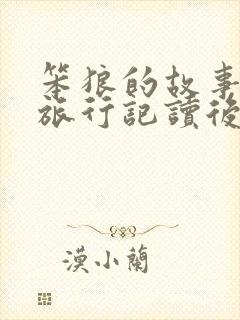 笨狼的故事
旅行記讀後
漠小蘭